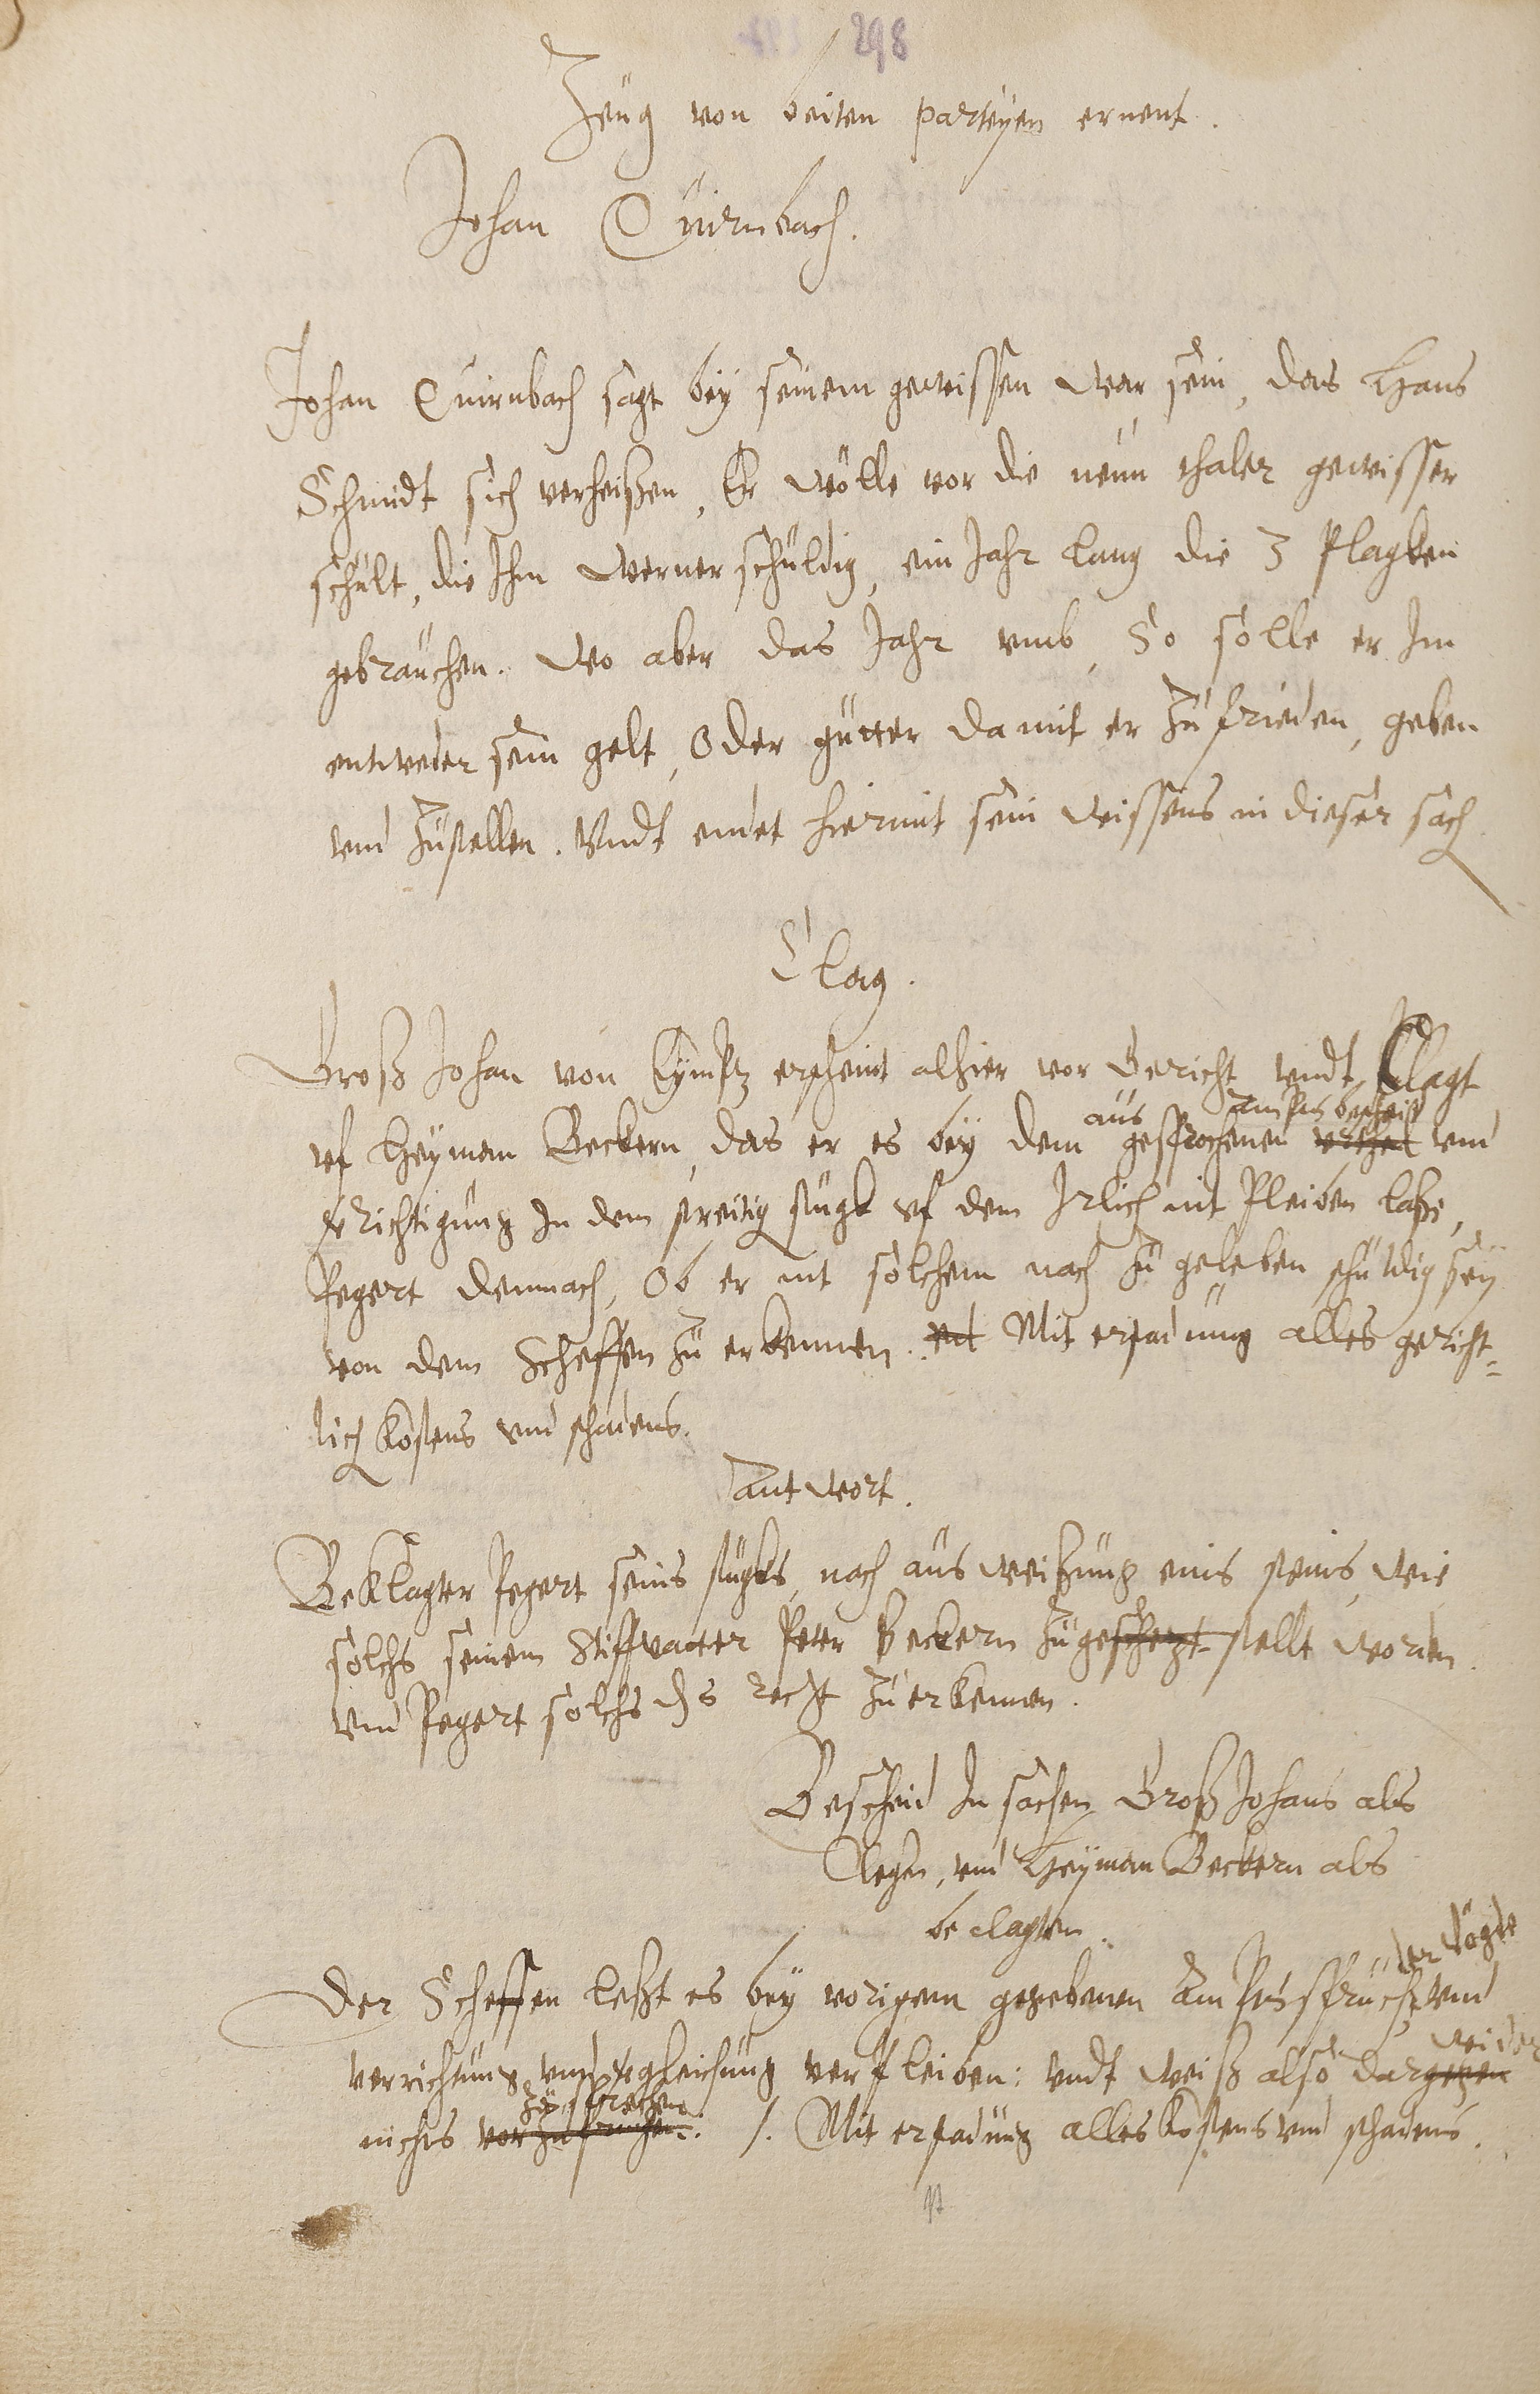 298
Zeug von beiten parteyen ernent.
Johan Quirnbach.
Johan Quirnbach sagt bey seinem gewissen war sein, das Hans
Schmidt sich verheißen, Er wölle vor die neun thaler gewisser
schult, die Ihm Werner schuldig, ein Jahr lang die 3 Plagken
gebrauchen. wo aber das Jahr vmb, So solle er Im
entweder sein gelt, Oder gutter damit er zufrieden, geben
vnd zustellen. Vndt endet hiermit sein wissens in dieser sach
Clag.
Groß Johan von erscheint alhier vor Gericht vndt Clagt
vf Heyman Beckern, das er es bey dem aus gesprochenen vrthel vnd
richtigung In dem streitig stugk vf dem Irlich nit Pleiben laße,
Pegert demnach, Ob er nit solchem nach zu geleben schuldig sey
von dem Scheffen zu erkennen. Mit erstadnung alles gericht-
lich kostens vnd schadens.
Antwort.
Beklagter Pegert seins stugks, nach ausweißung eins steins, wie
solchs seinem Stiffvatter Peter Beckern zugeschezt stellt worden.
vnd Pegert solchs recht zu erkennen.
Bescheid In sachen Groß Johans als
Clegern, vnd Heyman Beckern als
beclagten.
Der Scheffen leßt es bey vorigem gegebenen Ampts spruch, vnd
verrichtung vnd vergleichung verpleiben: vndt weiß also dargegen wider
nichts zu sprechen /. Mit erstadnung alles kostens vnd schadens.